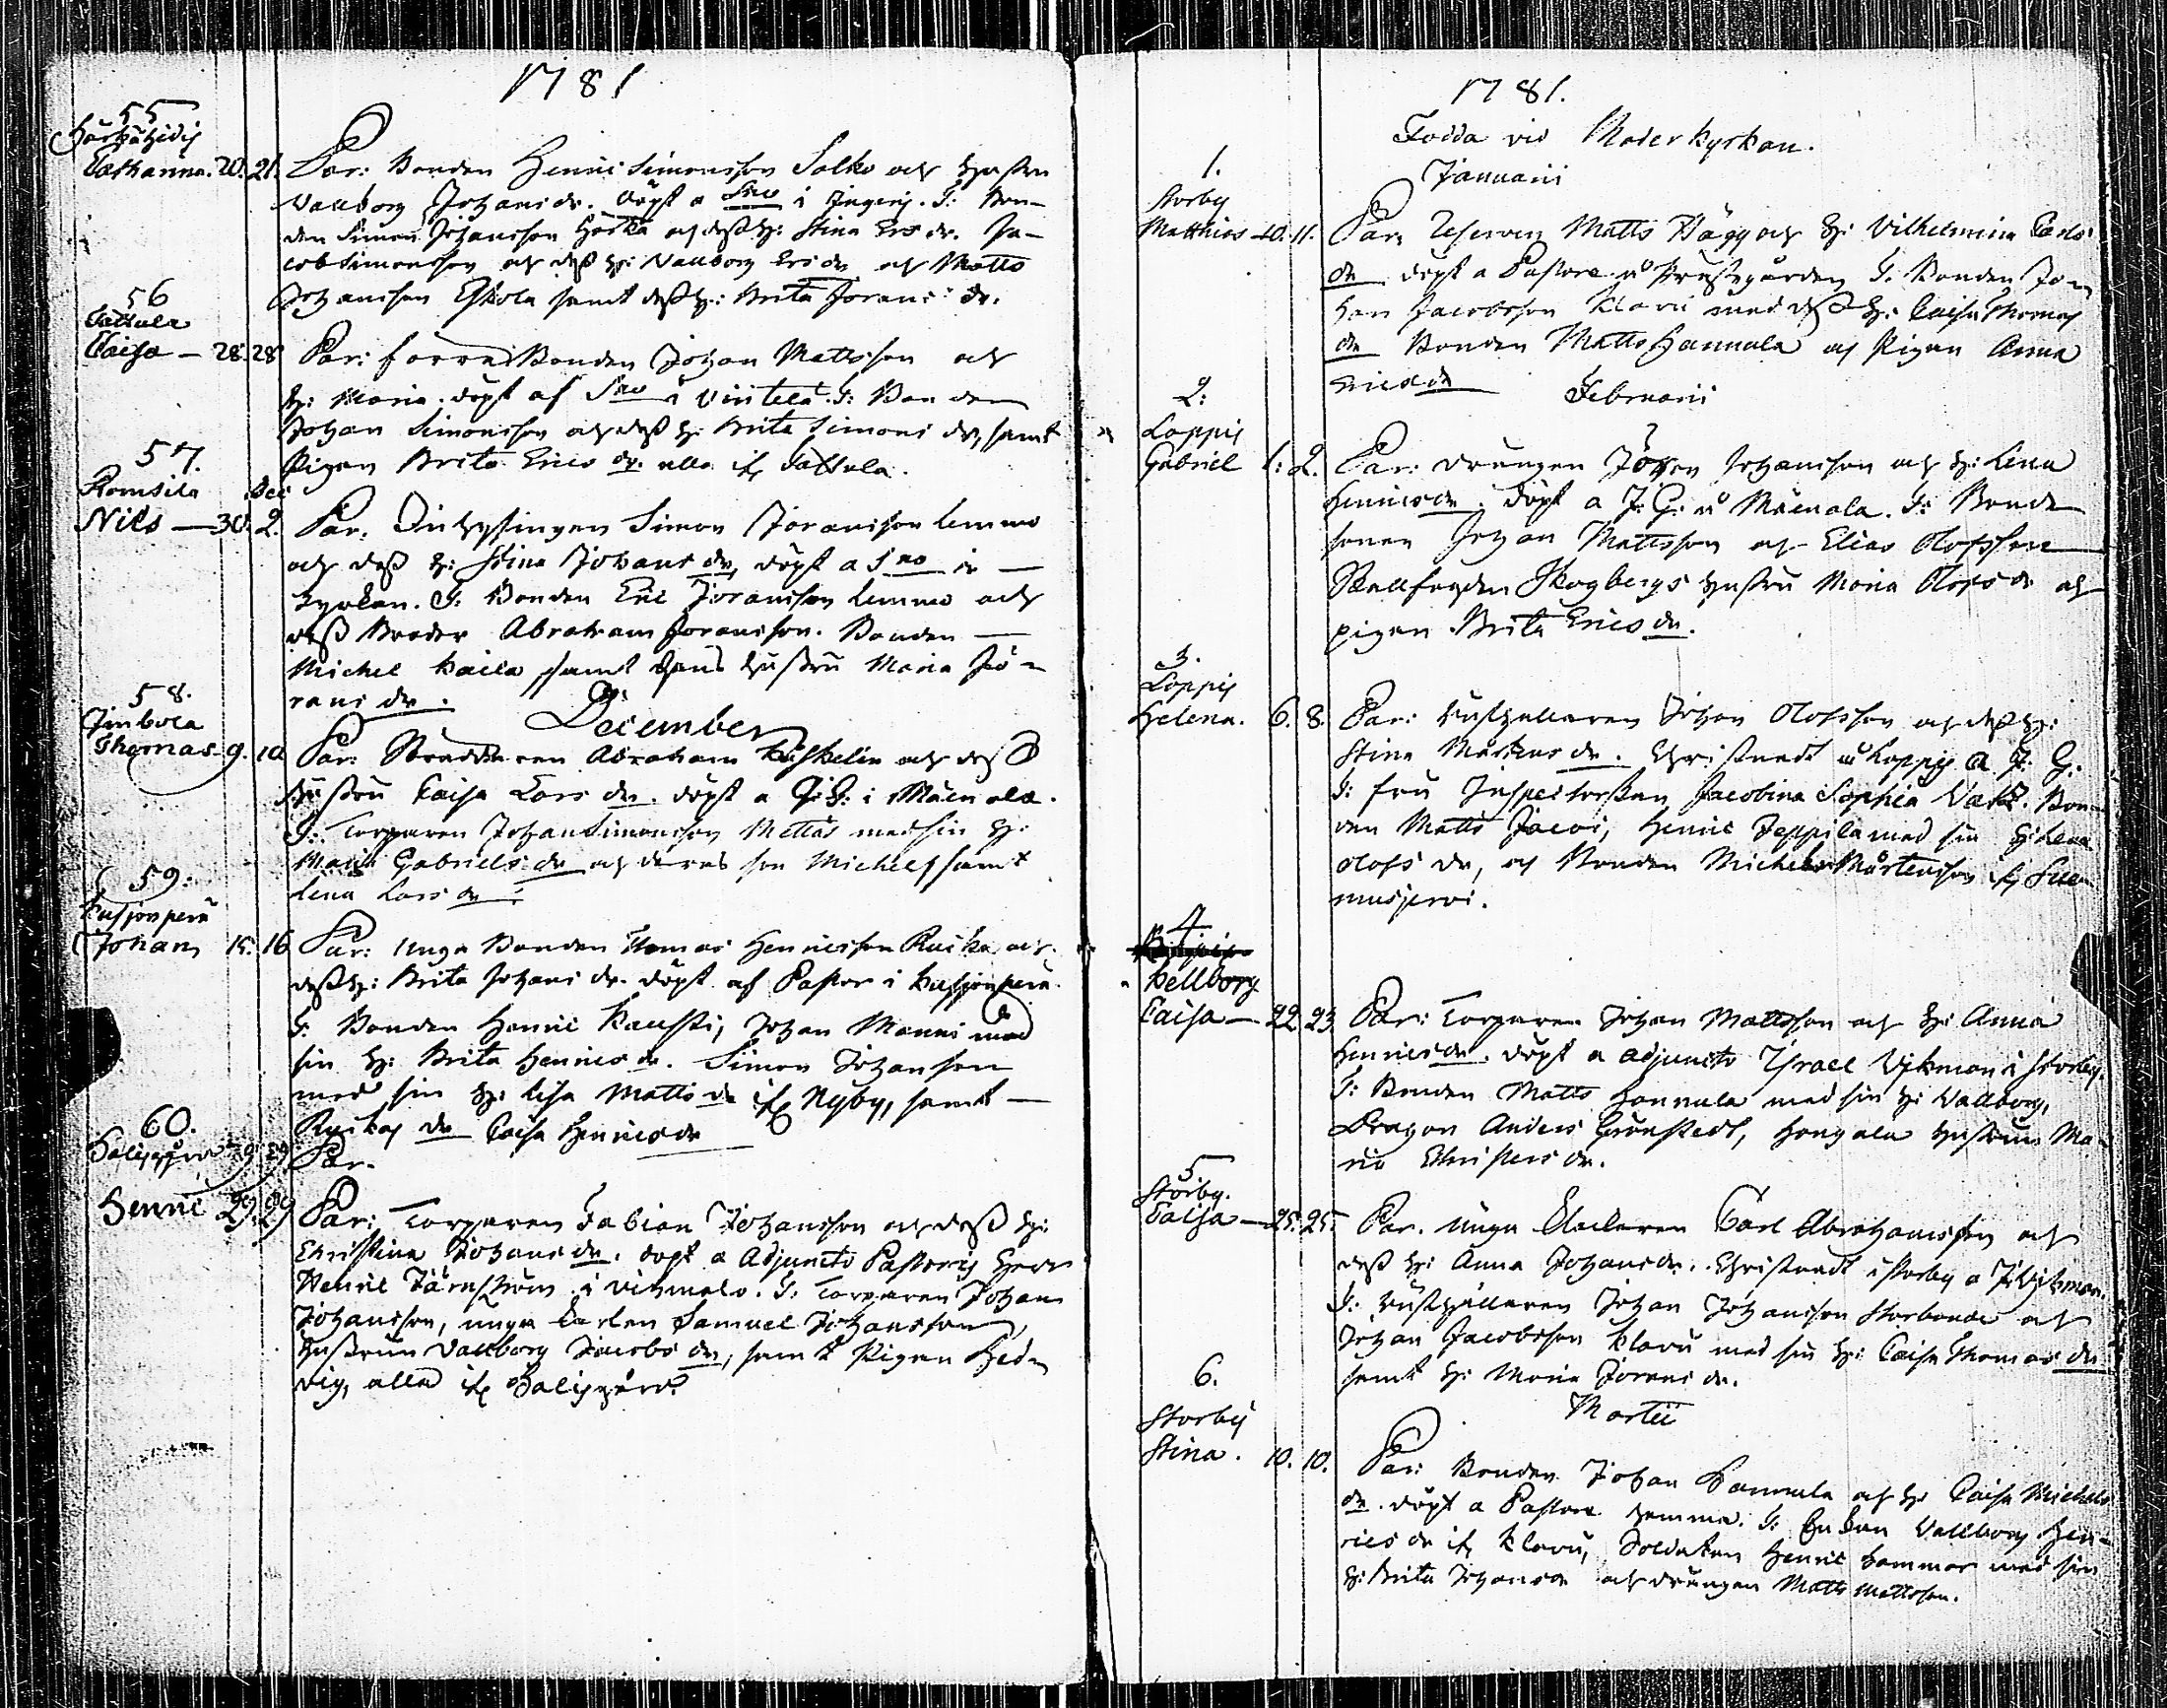 1781
55
Catharina. 20. 21. Par: Bonden Henric Simonsson Salko och hustru
Vallborg Johans dr. döpt a Sno i Ingeris. T: Bon-
den Simon Johansson Hörkä och dess h: Stina Ers dr. Ja-
cob Simonsson och dess h: Vallborg Ers dr och Matts
Johansson Eskola samt dess h: Brita Jörans dr.
56
Tattula
Caisa — 28. 28 Par: förra Bonden Johan Mattsson och
h: Maria. döpt af Sno i Viintela. T: Bonden
Johan Simonsson och dess h: Brita Simons dr, samt
Pigan Brita Erics dr. alla ifr Tattula.
57.
Romsila Dec
Nils — 30. 2. Par. Inhysingen Simon Jöransson Lemmo
och dess h: Stina Johans dr, döpt a Sno i —
Kyrkan. T: Bonden Eric Jöransson Lemmo och
dess Broder Abraham Jöransson. Bonden —
Michel Kaila samt hans hustru Maria Jö-
rans dr.
December
58.
Jimbola
Thomas 9. 10 Par: Abraham och dess
hustru Caisa Lars dr. döpt a J: G: i Mäenala.
T: Torparen Johan Simonsson Mettäs med sin h:
Maria Gabriels dr och deras son Michel, samt
Lena Lars dr.
59.
Kusjonperä
Johan 15. 16 Par: Unga Bonden Thomas Henricsson Ruika och
dess h: Brita Johans dr. döpt af Pastor i Kusjonperä.
T: Bonden Henric Kauski, Johan Manni med
sin h: Brita Henrics dr. Simon Johansson
med sin h: Lisa Matts dr ifr Nyby, samt —
Ruikas dr Caisa Henrics dr
60.
Salisjärvi 29 29 Par.
Henric 29. 29 Par: Torparen Fabian Johansson och dess h:
Christina Johans dr. döpt a Adjuncto Pastoris Herr
Henric Järnström i Vihmalo. T: Torparen Johan
Johansson, unga Karlen Samuel Johansson,
hustrun Vallborg Jacobs dr, samt Pigan Hed-
vig, alla ifr Salisjärvi.
1781.
Födda vid Moderkyrkan.
Januarii
1.
Storby
Matthias 10. 11. Par: Reserven Matts Hägg och h: Vilhelmina Carls
dr döpt a Pastore på Prästgården T: Bonden Jo-
han Jacobsson Klavu med dess h: Caisa Thomas
dr Bonden Matts Hannula och Pigan Anna
Erics dr
Februarii
2:
Loppis
Gabriel 1: 2. Par: drängen Jöran Johansson och h: Lena
Henrics dr. döpt a J. G. i Mäenala. T: Bonde
sonen Johan Mattsson och Elias Olofsson
Skallfogden Skogbergs hustru Maria Olofs dr och
pigan Brita Erics dr.
3.
Loppis
Helena. 6. 8. Par: Rusthållaren Johan Olofsson och dess h:
Stina Mårtens dr. Christnadt i Loppis a J: G.
T: fru Inspectorskan Jacobina Sophia Bon-
den Matts Jacoi, Henric Jeppila med sin h: Lena
Olofs dr, och Bonden Michel Mårtensson ifr Suo-
musjervi.
4
Kellborg
Caisa — 22 23 Par: Torparen Johan Mattsson och h: Anna
Henrics dr. döpt a adjuncto Israel Vikman i Storby.
T: Bonden Matts Hannula med sin h: Vallborg,
Dragon Anders Grönstedt, Hongala hustrun Ma-
ria Christers dr.
5
Storby.
Caisa — 25. 25. Par. unga Carl Abrahamsson och
dess h: Anna Johans dr. Christnadt i Storby a J. Vikman.
T: Rusthållaren Johan Johansson Storbonde och
Johan Jacobsson Klavu med sin h: Caisa Thomas dr
samt h: Maria Jörans dr.
Martii
6.
Storby
Stina. 10. 10. Par: Bonden Johan Hannula och h: Caisa Michels
dr. döpt a Pastore hemma. T: Enkan Vallborg Hen-
rics dr ifr Klavu, Soldaten Henric Hammar med sin
h: Brita Johans dr och drängen Matts Mattsson.